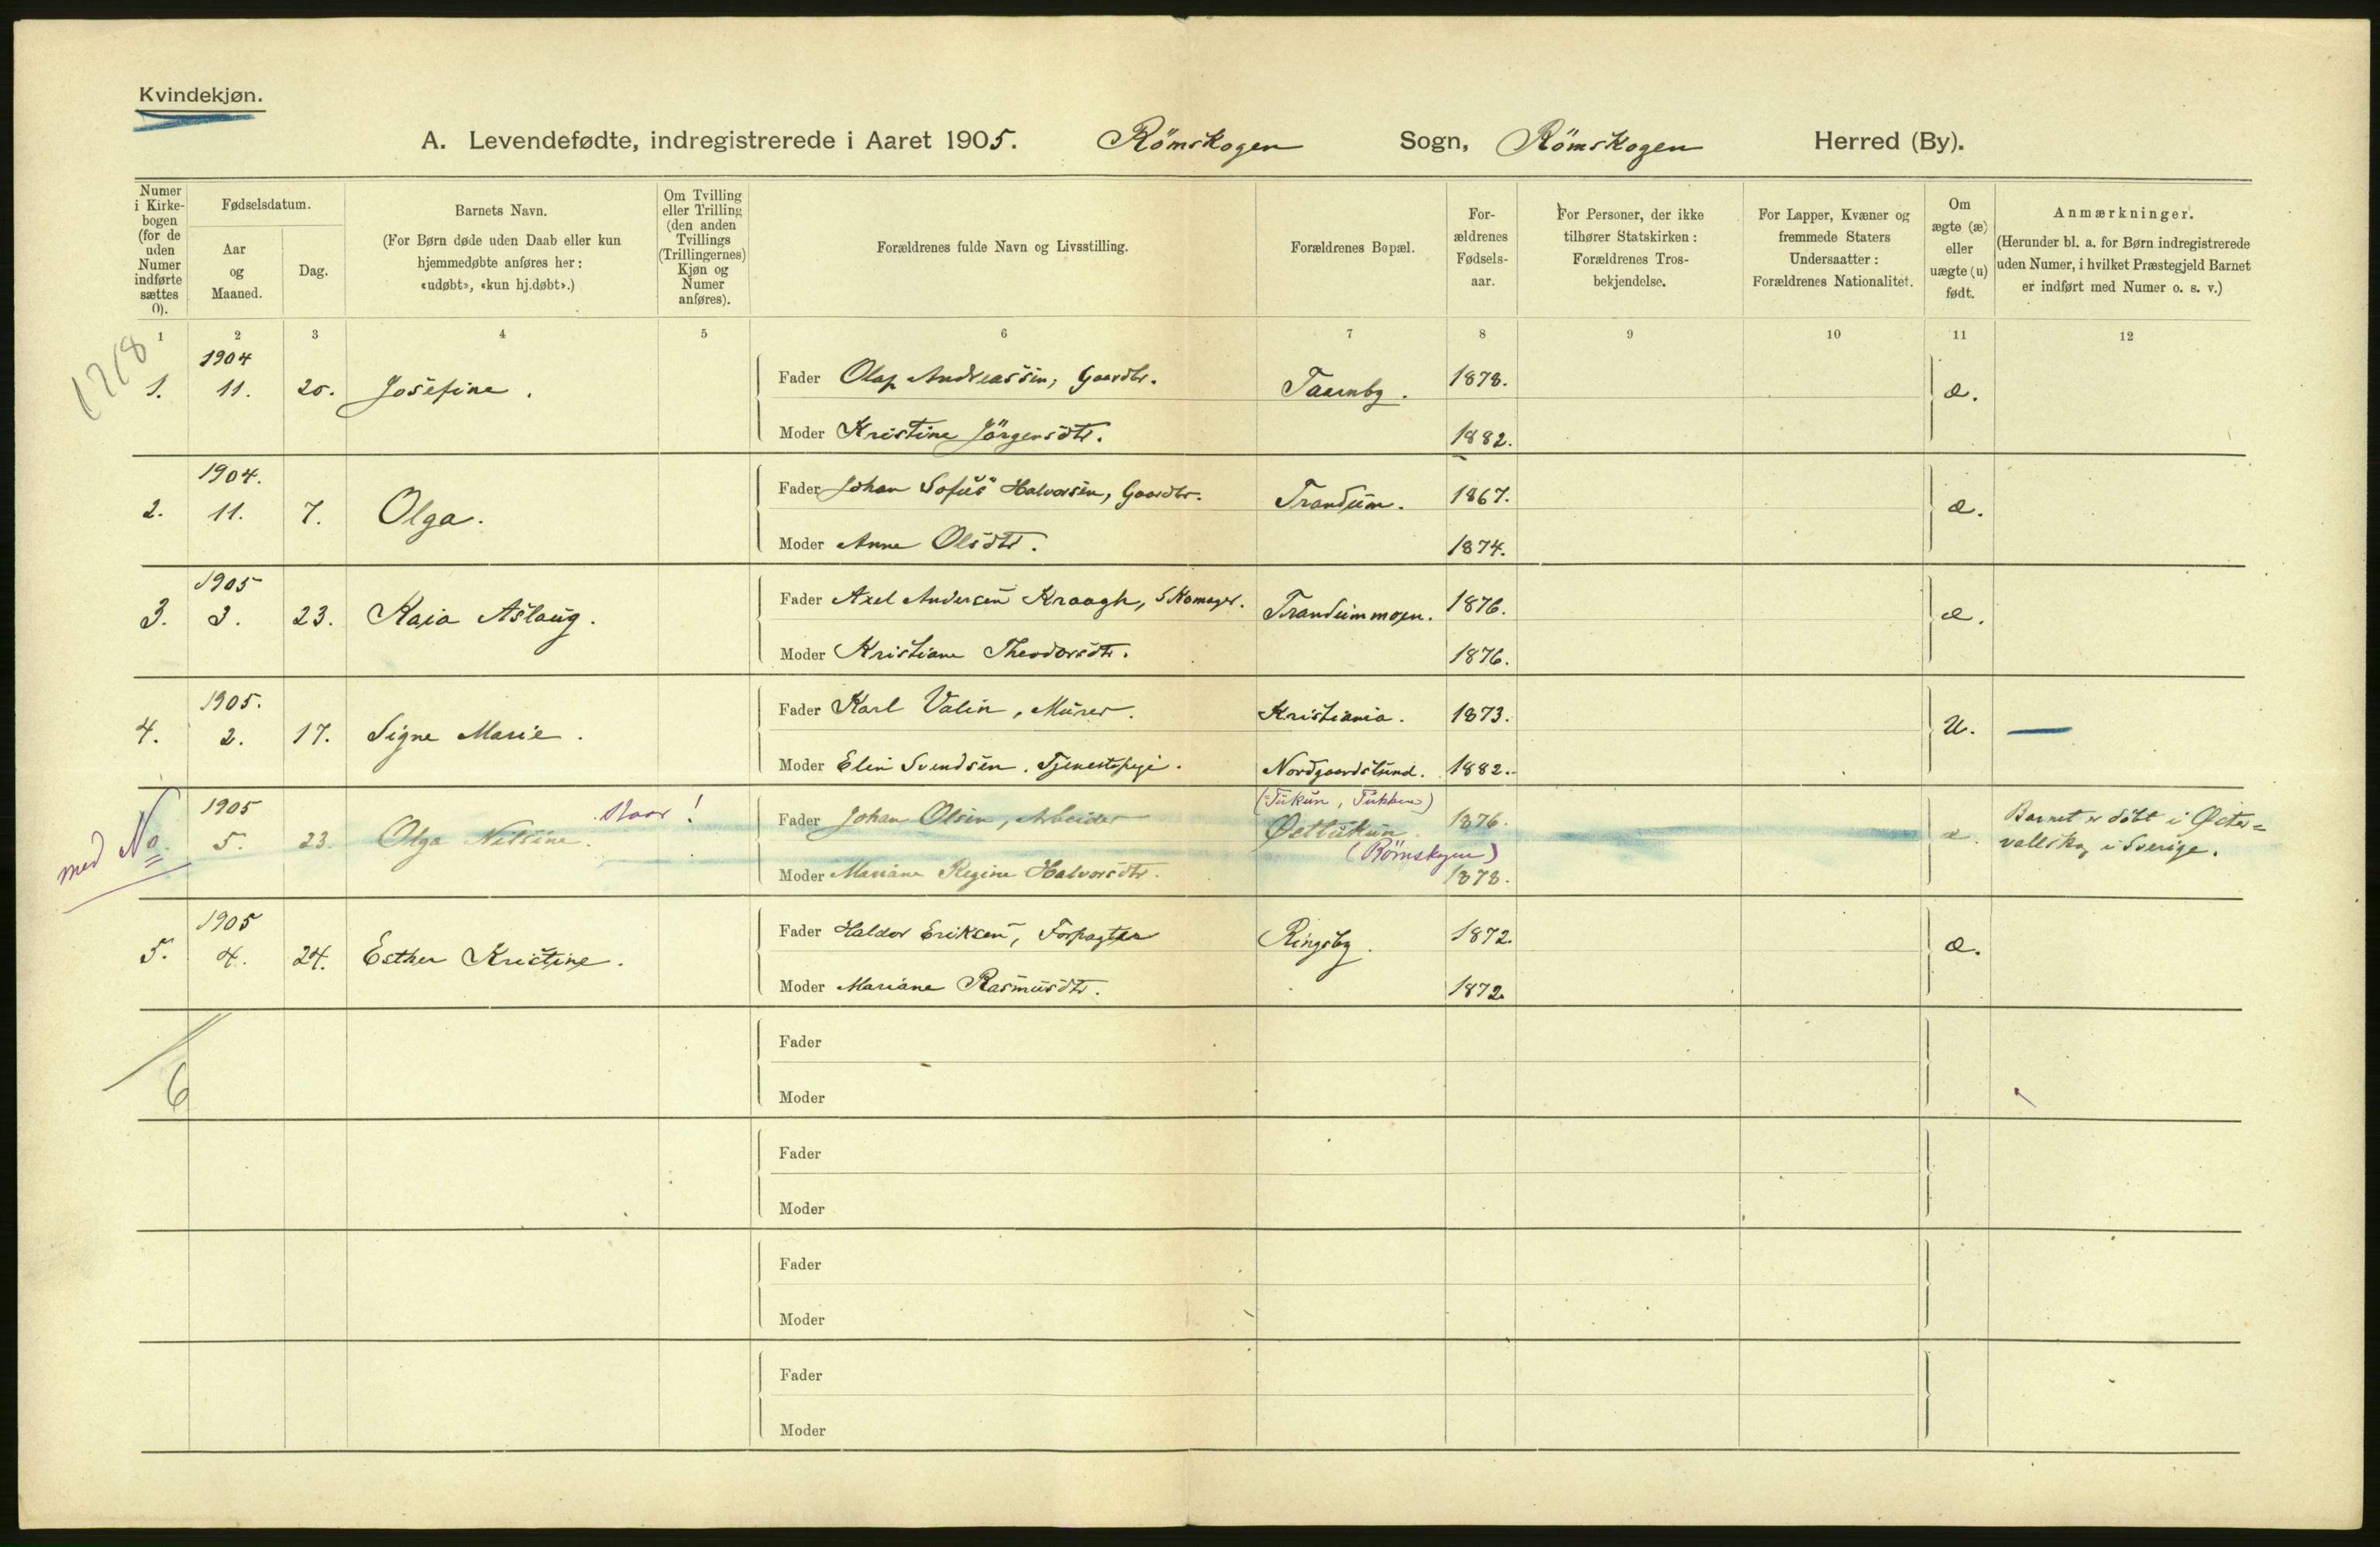 Kvindekjøn.
A. Levendefødte, indregistrerede i Aaret 1905. Römskogen Sogn, Römskogen Herred (By).
Numer
i Kirke-
bogen
(for de
uden
Numer
indførte
sættes
0).
Fødselsdatum.
Aar
og
Maaned.
Dag.
Barnets Navn.
(For Børn døde uden Daab eller kun
hjemmedøbte anføres her:
«udøbt», «kun hj.døbt».)
Om Tvilling
eller Trilling
(den anden
Tvillings
(Trillingernes)
Kjøn og
Numer
anføres).
Forældrenes fulde Navn og Livsstilling.
Forældrenes Bopæl.
For-
ældrenes
Fødsels-
aar.
For Personer, der ikke
tilhører Statskirken:
Forældrenes Tros-
bekjendelse.
For Lapper, Kvæner og
fremmede Staters
Undersaatter:
Forældrenes Nationalitet.
Om
ægte (æ)
eller
uægte (u)
født.
Anmærkninger.
(Herunder bl. a. for Børn indregistrerede
uden Numer, i hvilket Præstegjeld Barnet
er indført med Numer o. s. v.)
1 2 3 4 5 6 7 8 9 10 11 12
1904
1. 11. 20. Josefine.
Fader Olaf Andreassen, Gaardbr. Taarnby. 1878. æ.
Moder Kristine Jörgensdtr. 1882.
1904.
2. 11. 7. Olga.
Fader Johan Sofus Halvorsen, Gaardbr. Trandum. 1867. æ.
Moder Anne Olsdtr. 1874.
1905
3. 3. 23. Kaia Aslaug.
Fader Axel Andersen Kraagh, Skomager. Trandummoen. 1876. æ.
Moder Kristiane Theodorsdtr. 1876.
1905.
4. 2. 17. Signe Marie.
Fader Karl Valin, Murer. Kristiania. 1873. u. —
Moder Elin Svendsen. Tjenestepige. Nordgaardslund. 1882.
1905
med No. 5. 23. Olga Nilsine.
Fader Johan Olsen, Arbeider 1876. æ.
(Römskogen)
Moder Mariane Regine Halvorsdtr. 1878.
Barnet er döbt i Öster=
vallskog i Sverige.
1905
5. 4. 24. Esther Kristine.
Fader Haldor Eriksen, Forpagter Ringsby. 1872. æ.
Moder Mariane Rasmusdtr. 1872.
Fader
Moder
6
Fader
Moder
Fader
Moder
Fader
Moder